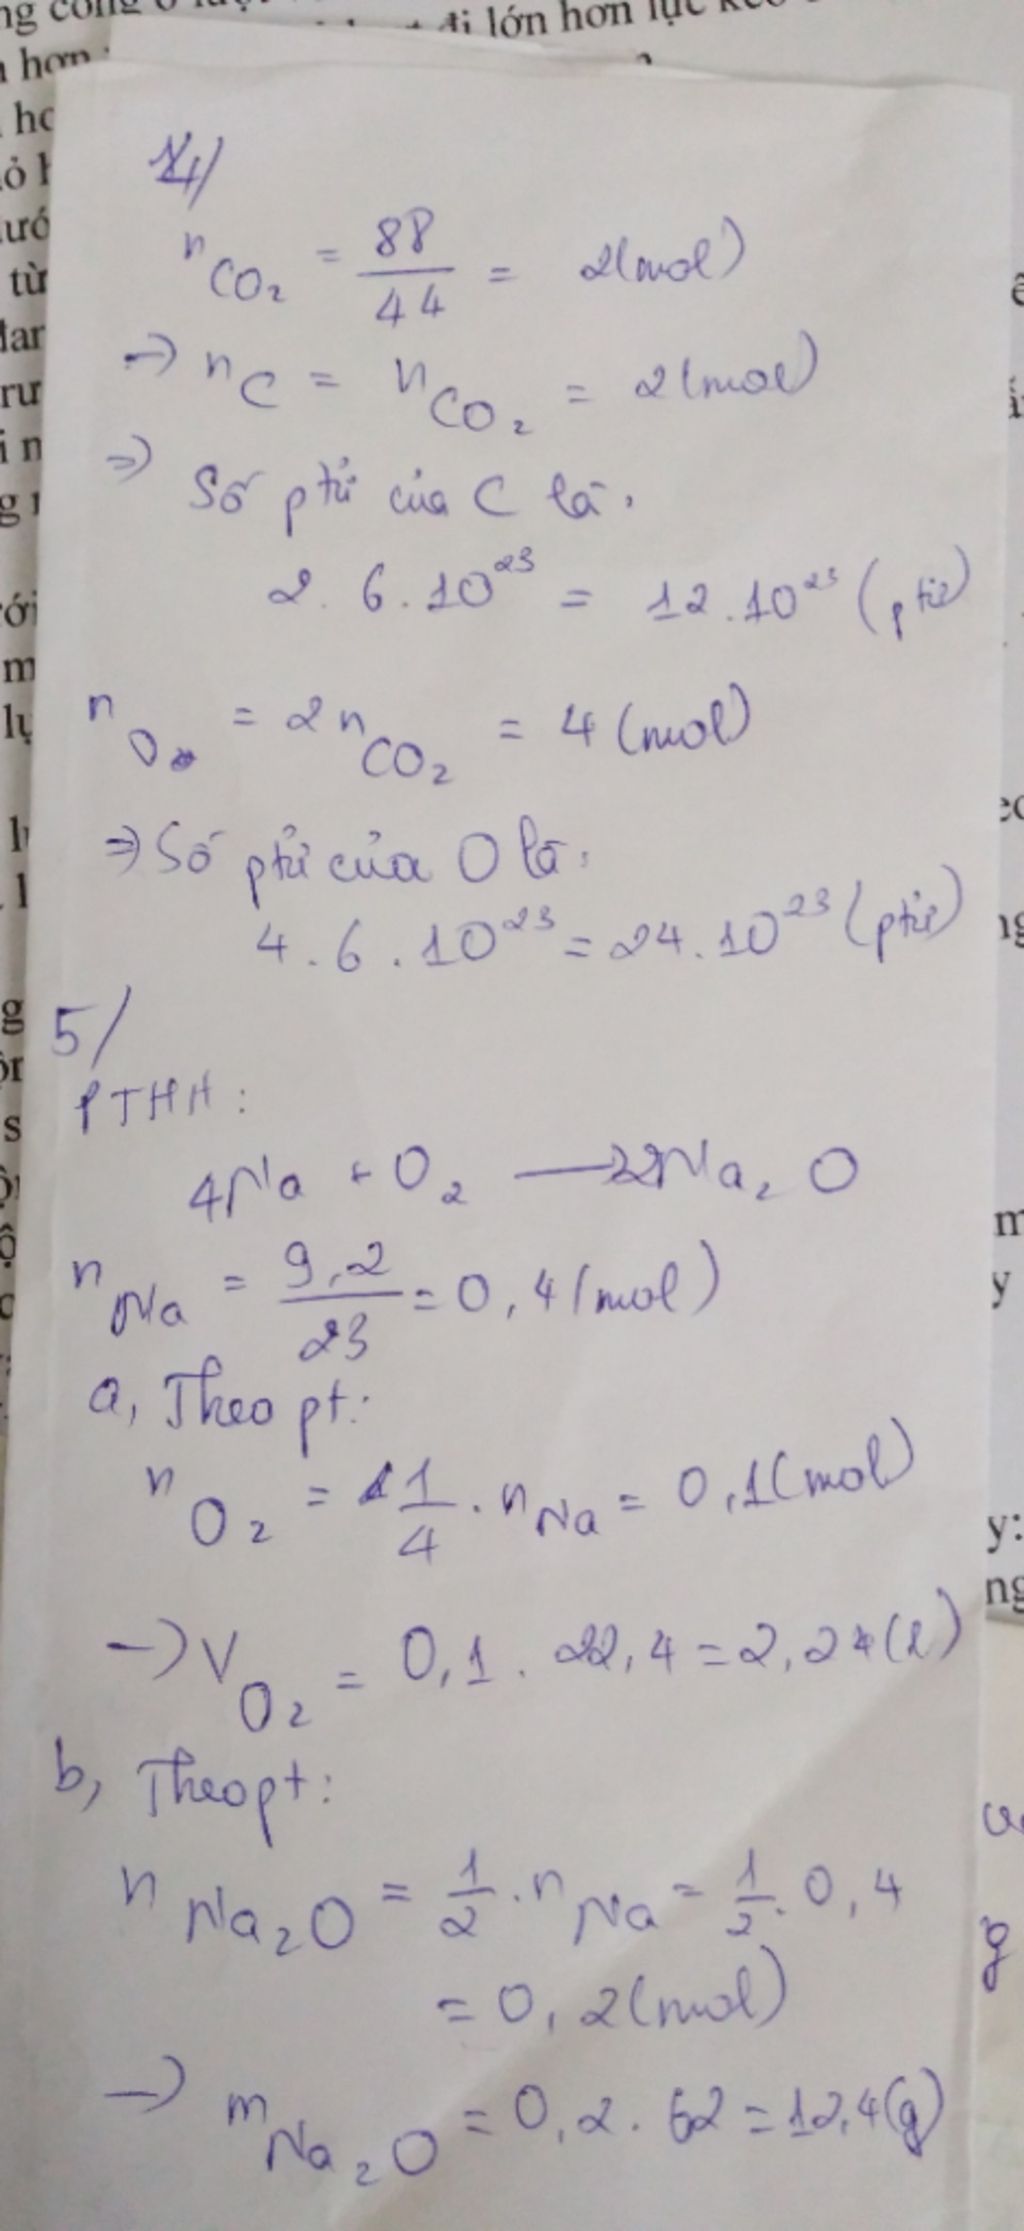 ng công
đi lớn hơn lực kéo
hơn
4/
nCO₂ = 88/44 = 2(mol)
→ nC = nCO₂ = 2(mol)
⇒ Số ptử của C là:
2.6.10²³ = 12.10²³ (ptử)
nO = 2nCO₂ = 4(mol)
⇒ Số ptử của O là:
4.6.10²³ = 24.10²³ (ptử)
5/
PTHH:
4Na + O₂ → 2Na₂O
nNa = 9,2/23 = 0,4(mol)
a, Theo pt:
nO₂ = 1/4 . nNa = 0,1(mol)
→ VO₂ = 0,1 . 22,4 = 2,24(l)
b, Theo pt:
nNa₂O = 1/2 . nNa = 1/2 . 0,4
= 0,2(mol)
→ mNa₂O = 0,2 . 62 = 12,4(g)